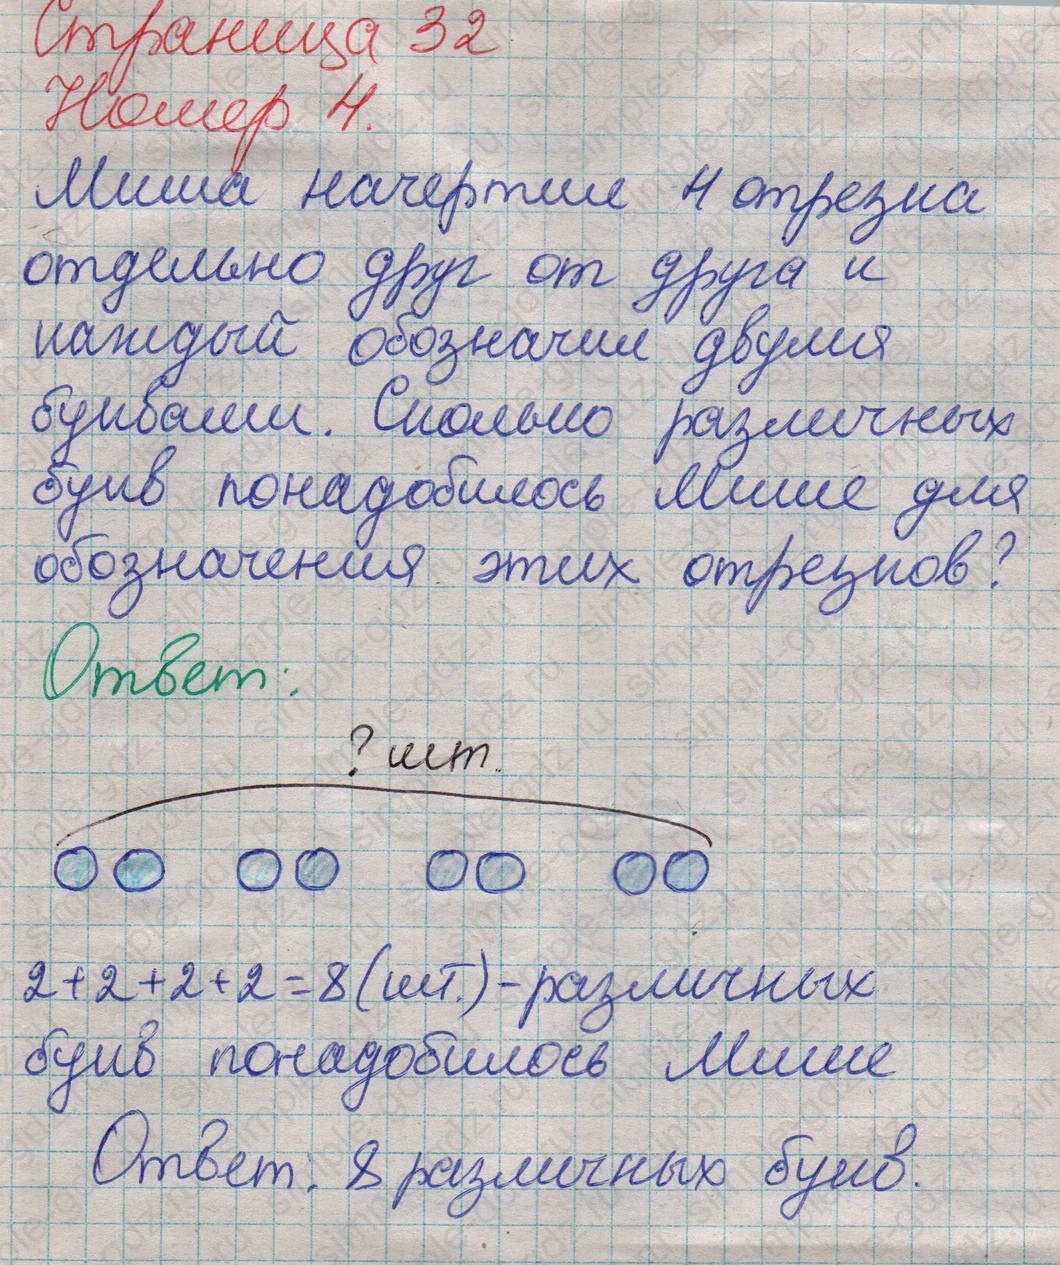 Страница 32
Номер 4.
Миша начертил 4 отрезка
отдельно друг от друга и
каждый обозначил двумя
буквами. Сколько различных
букв понадобилось Мише для
обозначения этих отрезков?
Ответ:
? шт.
2+2+2+2=8(шт.)-различных
букв понадобилось Мише
Ответ: 8 различных букв.
simple-gdz.ru